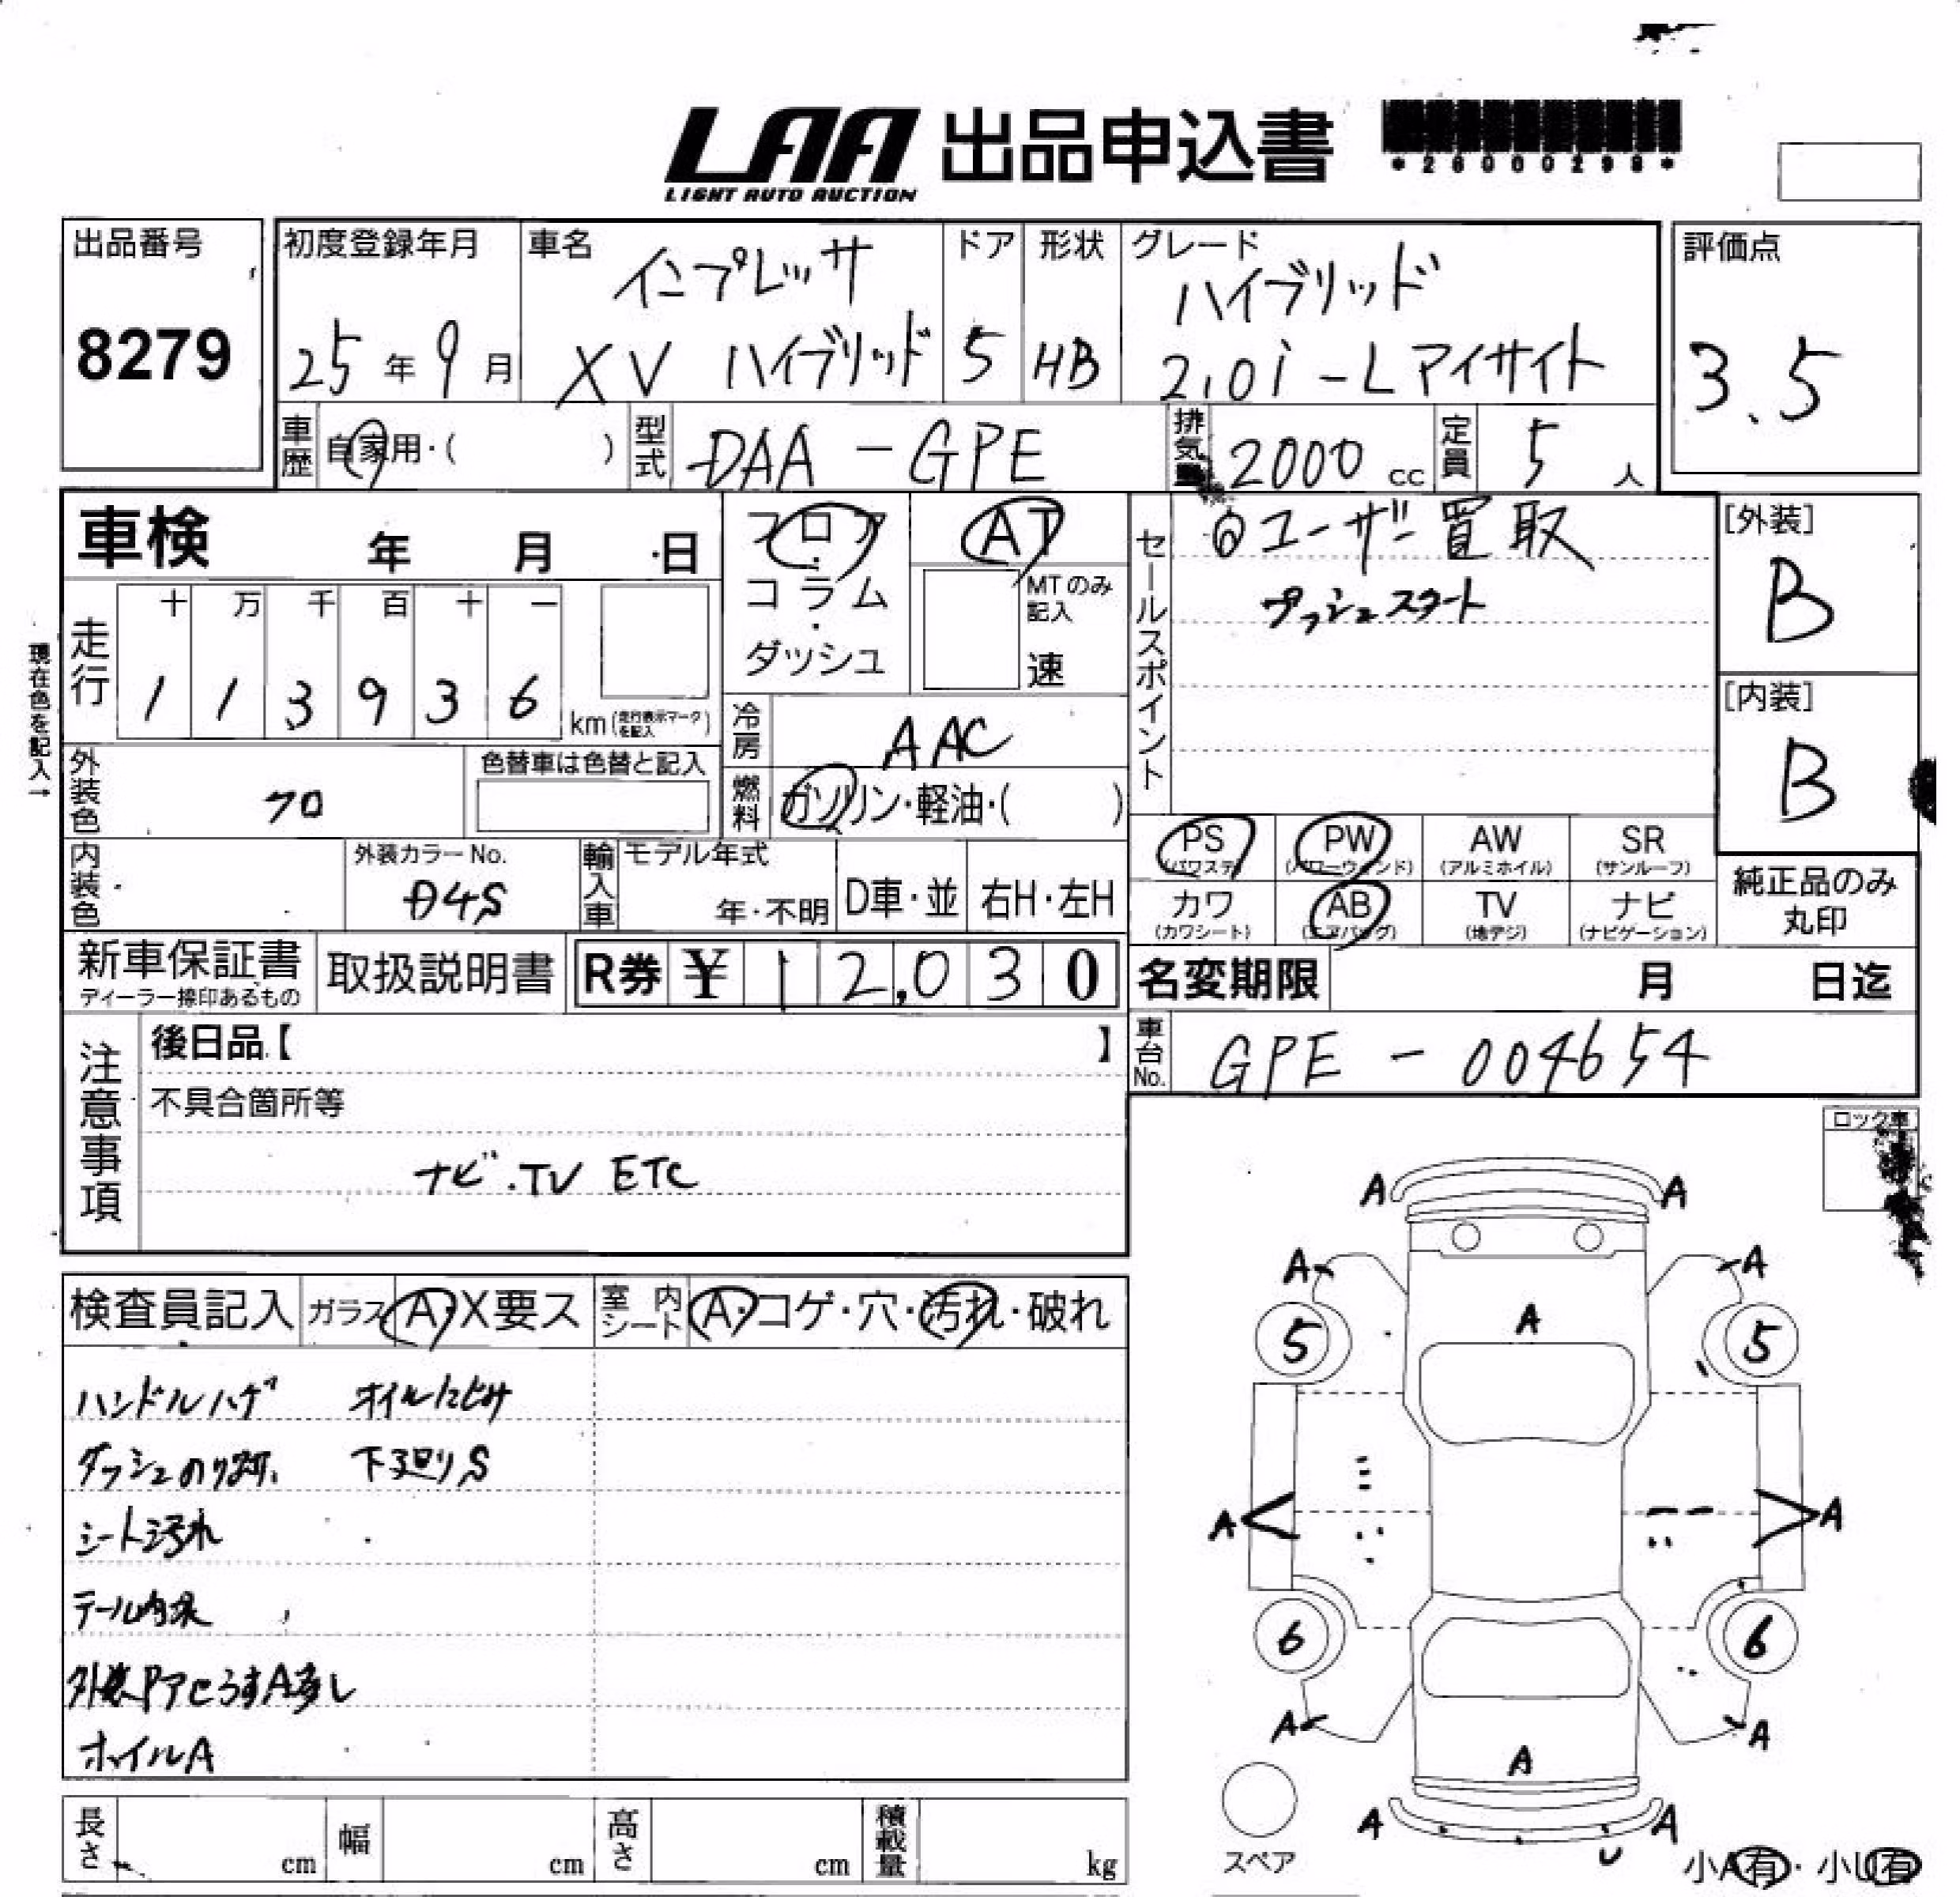 LAA 出品申込書
LIGHT AUTO AUCTION
*26000298*
出品番号
8279
初度登録年月
25年9月
車名
インプレッサ
XV ハイブリッド
ドア
5
形状
HB
グレード
ハイブリッド
2.0i-Lアイサイト
評価点
3.5
車歴
自家用・( )
型式
DAA-GPE
排気量
2000 cc
定員
5 人
車検 年 月 日
フロア・コラム・ダッシュ
AT
MTのみ記入
速
セールスポイント
◎ユーザー買取
プッシュスタート
[外装]
B
[内装]
B
現在色を記入→
走行
十 万 千 百 十 一
1 1 3 9 3 6
km(走行表示マークを記入)
冷房
AAC
外装色
クロ
色替車は色替と記入
燃料
ガソリン・軽油・( )
PS (パワステ)
PW (パワーウィンド)
AW (アルミホイル)
SR (サンルーフ)
カワ (カワシート)
AB (エアバッグ)
TV (地デジ)
ナビ (ナビゲーション)
純正品のみ丸印
内装色
外装カラーNo.
D4S
輸入車
モデル年式
年・不明
D車・並
右H・左H
新車保証書
ディーラー捺印あるもの
取扱説明書
R券 ¥ 12,030
名変期限 月 日迄
車台No.
GPE-004654
注意事項
後日品【 】
不具合箇所等
ナビ.TV ETC
ロック車
検査員記入
ガラス A・X要ス
室内シート A・コゲ・穴・汚れ・破れ
ハンドルハゲ オイルにじみ
ダッシュのり跡 下廻りS
シート汚れ
テール内
外装 うすA多し
ホイルA
A A
A A
5 A 5
A A
6 6
A A
A
A A
U
スペア
小A有・小U有
長さ cm
幅 cm
高さ cm
積載量 kg